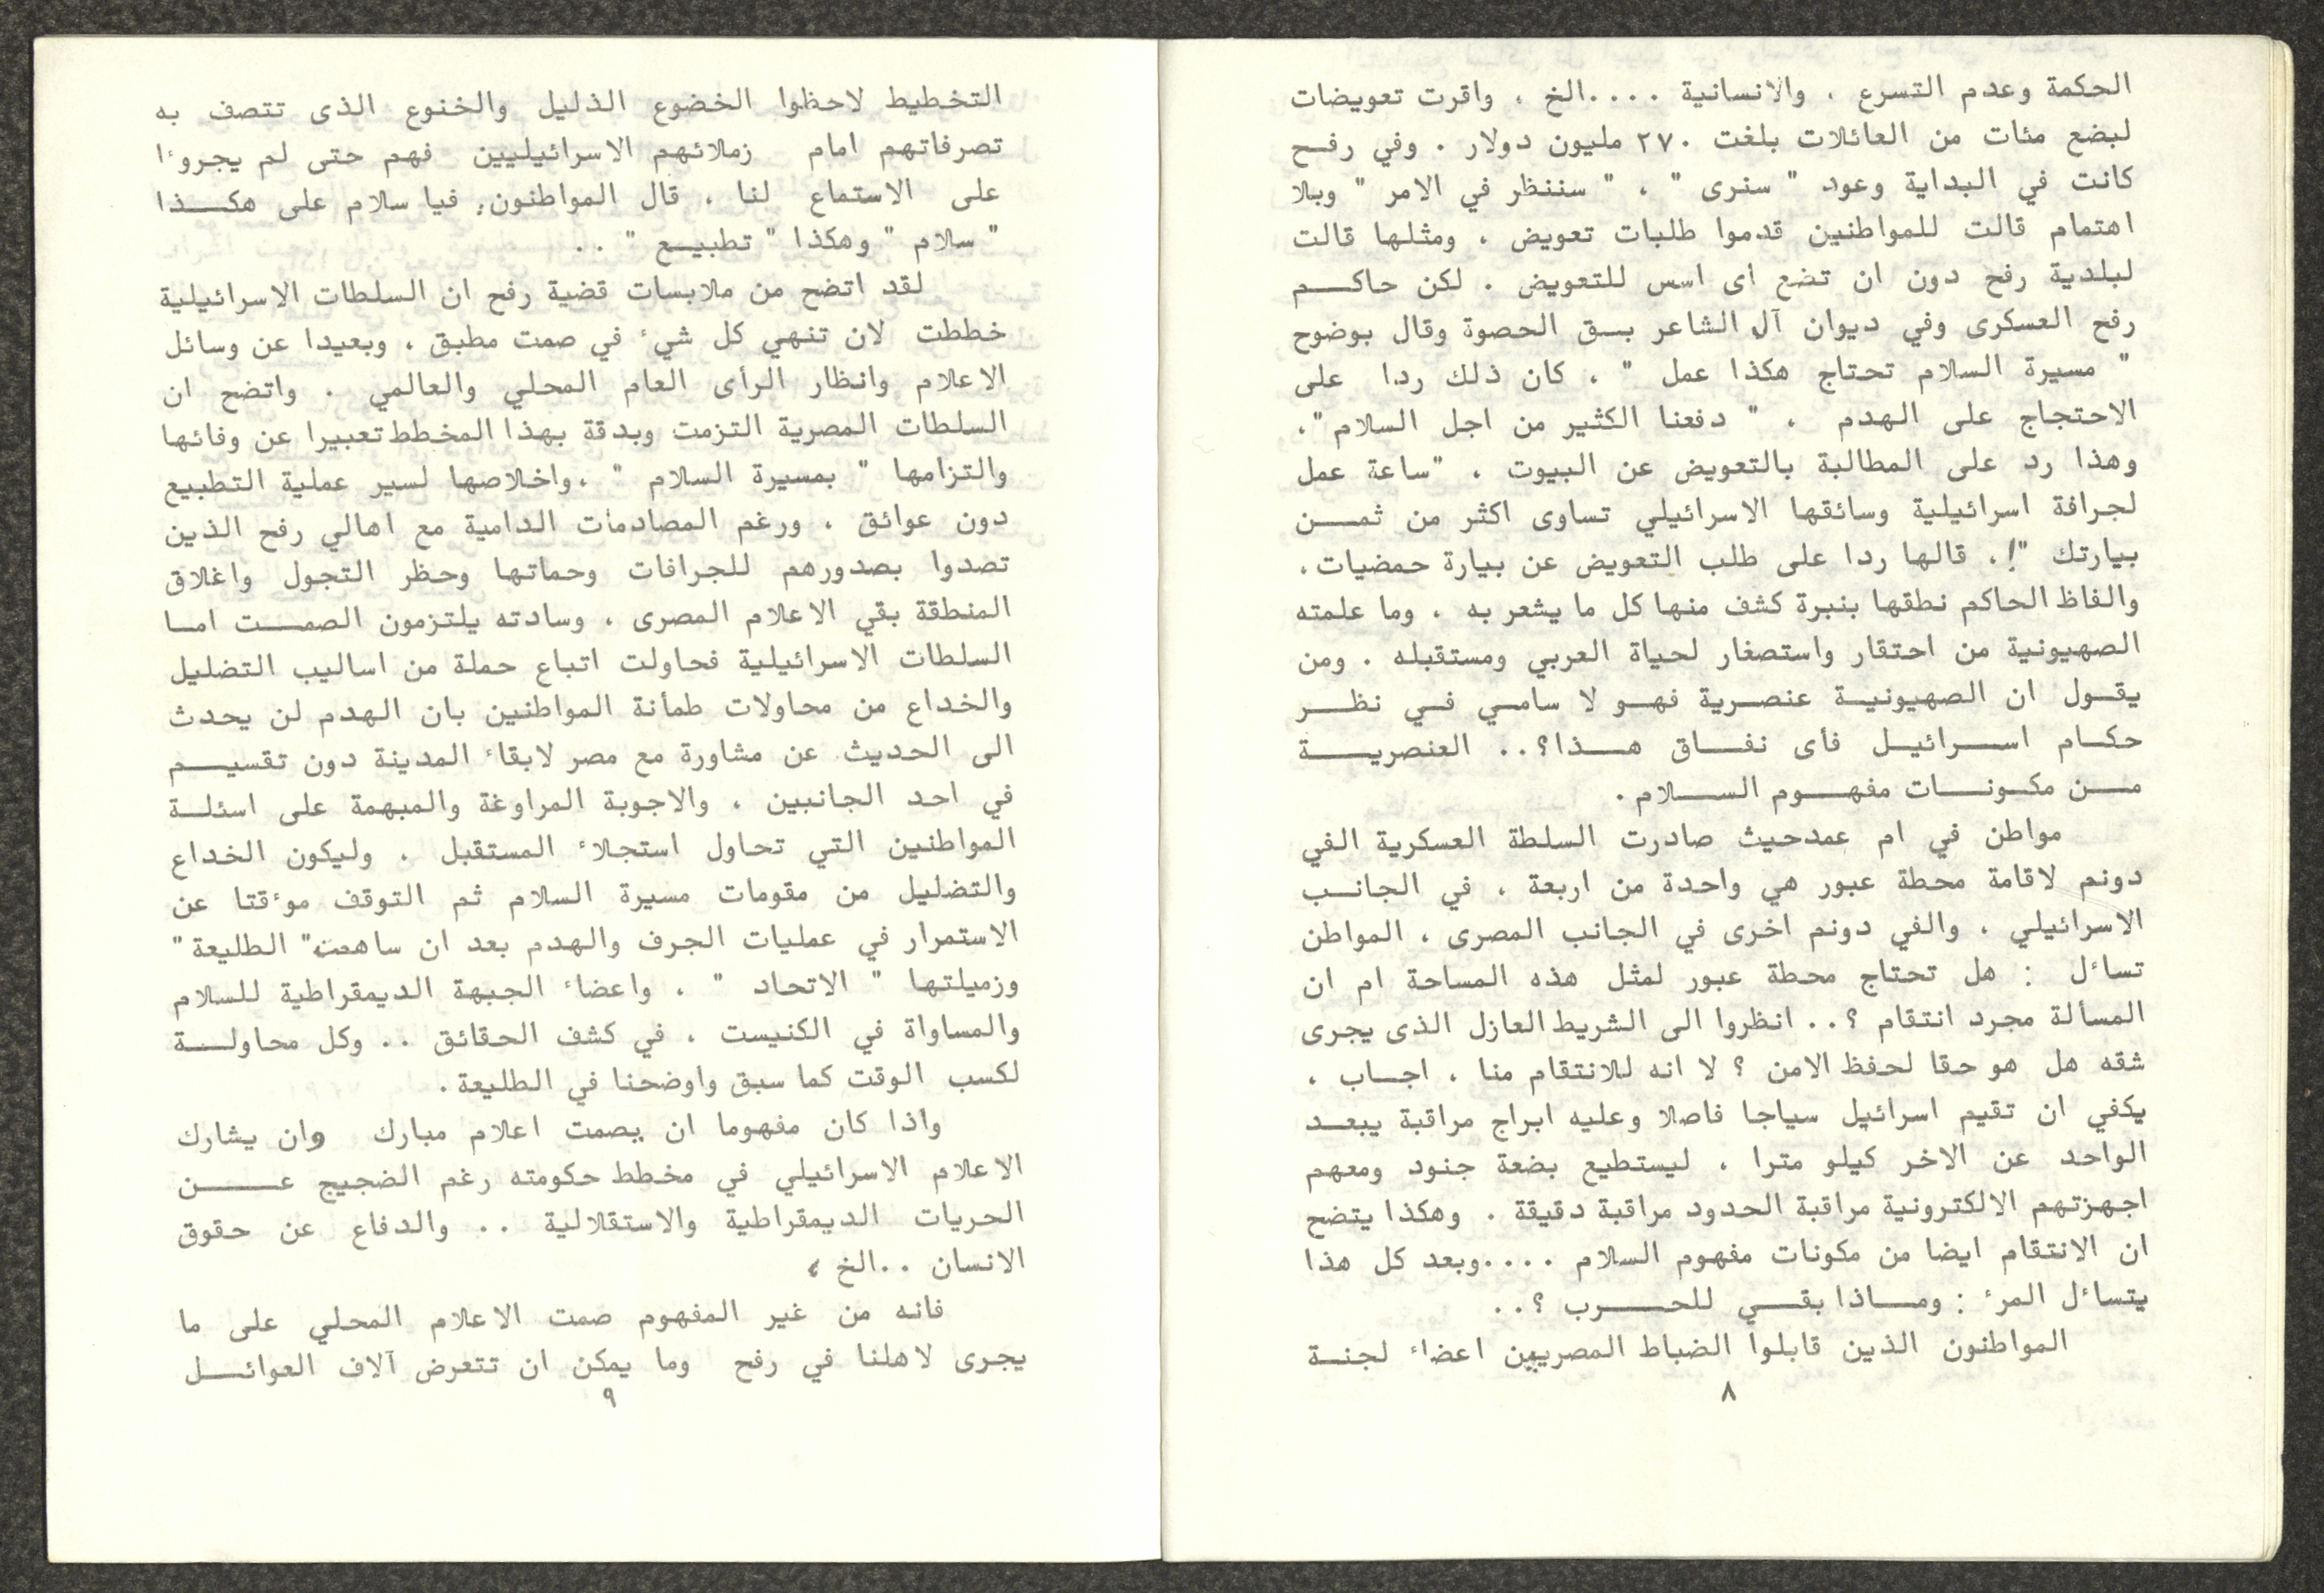 الحكمة وعدم التسرع ، والانسانية ....الخ ، واقرت تعويضات
لبضع مئات من العائلات بلغت ٢٧٠ مليون دولار . وفي رفح
كانت في البداية وعود " سنرى " ، " سننظر في الامر " وبلا
اهتمام قالت للمواطنين قدموا طلبات تعويض ، ومثلها قالت
لبلدية رفح دون ان تضع اى اسس للتعويض . لكن حاكم
رفح العسكرى وفي ديوان آل الشاعر بق الحصوة وقال بوضوح
" مسيرة السلام تحتاج هكذا عمل " ، كان ذلك ردا على
الاحتجاج على الهدم ، " دفعنا الكثير من اجل السلام "،
وهذا رد على المطالبة بالتعويض عن البيوت ، "ساعة عمل
لجرافة اسرائيلية وسائقها الاسرائيلي تساوى اكثر من ثمن
بيارتك "!، قالها ردا على طلب التعويض عن بيارة حمضيات ،
والفاظ الحاكم نطقها بنبرة كشف منها كل ما يشعر به ، وما علمته
الصهيونية من احتقار واستصغار لحياة العربي ومستقبله . ومن
يقول ان الصهيونية عنصرية فهو لا سامي في نظر
حكام اسرائيل فأى نفاق هذا؟.. العنصرية
من مكونات مفهوم السلام .
مواطن في ام عمدحيث صادرت السلطة العسكرية الفي
دونم لاقامة محطة عبور هي واحدة من اربعة ، في الجانب
الاسرائيلي ، والفي دونم اخرى في الجانب المصرى ، المواطن
تساءل : هل تحتاج محطة عبور لمثل هذه المساحة ام ان
المسألة مجرد انتقام ؟.. انظروا الى الشريط العازل الذى يجرى
شقه هل هو حقا لحفظ الامن ؟ لا انه للانتقام منا ، اجاب ،
يكفي ان تقيم اسرائيل سياجا فاصلا وعليه ابراج مراقبة يبعد
الواحد عن الاخر كيلو مترا ، ليستطيع بضعة جنود ومعهم
اجهزتهم الالكترونية مراقبة الحدود مراقبة دقيقة . وهكذا يتضح
ان الانتقام ايضا من مكونات مفهوم السلام ....وبعد كل هذا
يتساءل المرء : وماذا بقي للحرب ؟..
المواطنون الذين قابلوا الضباط المصريين اعضاء لجنة
٨
التخطيط لاحظوا الخضوع الذليل والخنوع الذى تتصف به
تصرفاتهم امام زملائهم الاسرائيليين فهم حتى لم يجروءا
على الاستماع لنا ، قال المواطنون، فيا سلام على هكذا
" سلام " وهكذا " تطبيع " ..
لقد اتضح من ملابسات قضية رفح ان السلطات الاسرائيلية
خططت لان تنهي كل شيء في صمت مطبق ، وبعيدا عن وسائل
الاعلام وانظار الرأى العام المحلي والعالمي . واتضح ان
السلطات المصرية التزمت وبدقة بهذا المخطط تعبيرا عن وفائها
والتزامها " بمسيرة السلام " ،واخلاصها لسير عملية التطبيع
دون عوائق ، ورغم المصادمات الدامية مع اهالي رفح الذين
تصدوا بصدورهم للجرافات وحماتها وحظر التجول واغلاق
المنطقة بقي الاعلام المصرى ، وسادته يلتزمون الصمت اما
السلطات الاسرائيلية فحاولت اتباع حملة من اساليب التضليل
والخداع من محاولات طمأنة المواطنين بان الهدم لن يحدث
الى الحديث عن مشاورة مع مصر لابقاء المدينة دون تقسيم
في احد الجانبين ، والاجوبة المراوغة والمبهمة على اسئلة
المواطنين التي تحاول استجلاء المستقبل ، وليكون الخداع
والتضليل من مقومات مسيرة السلام ثم التوقف موءقتا عن
الاستمرار في عمليات الجرف والهدم بعد ان ساهمت" الطليعة "
وزميلتها " الاتحاد " ، واعضاء الجبهة الديمقراطية للسلام
والمساواة في الكنيست ، في كشف الحقائق .. وكل محاولة
لكسب الوقت كما سبق واوضحنا في الطليعة .
واذا كان مفهوما ان يصمت اعلام مبارك وان يشارك
الاعلام الاسرائيلي في مخطط حكومته رغم الضجيج عن
الحريات الديمقراطية والاستقلالية .. والدفاع عن حقوق
الانسان ..الخ ،
فانه من غير المفهوم صمت الاعلام المحلي على ما
يجرى لاهلنا في رفح وما يمكن ان تتعرض آلاف العوائل
٩